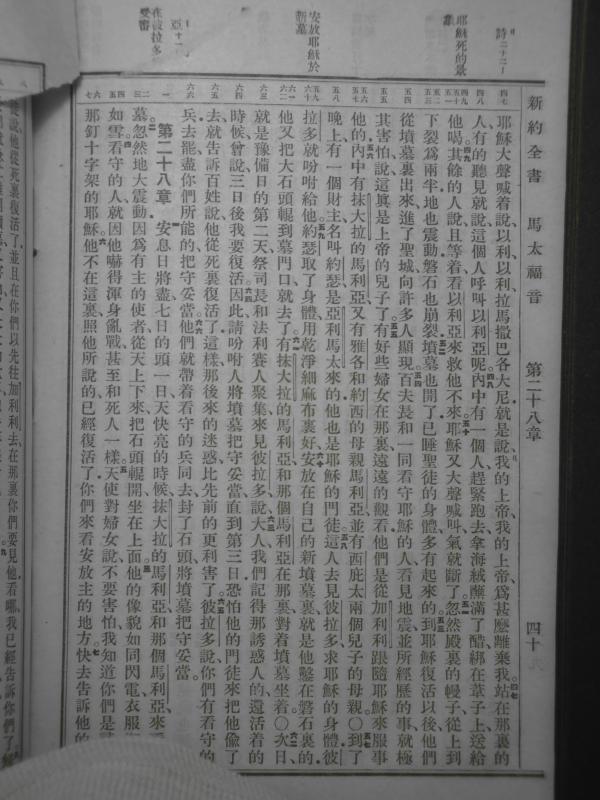 新約全書　馬太福音　第二十八章　四十
詩二十二
耶穌死的景
安放耶穌於新墓
在彼拉多受審
耶穌大聲喊着說以利以利拉馬撒巴各大尼就是說我的上帝我的上帝爲甚麼離棄我站在那裏的
人有的聽見就說這個人呼叫以利亞呢內中有一個人趕緊跑去拿海絨蘸滿了醋綁在葦子上送給
他喝其餘的人說且等着看以利亞來救他不來耶穌又大聲喊叫氣就斷了忽然殿裏的幔子從上到
下裂爲兩半地也震動磐石也崩裂墳墓也開了已睡聖徒的身體多有起來的到耶穌復活以後他們
從墳墓裏出來進了聖城向許多人顯現百夫長和一同看守耶穌的人看見地震並所經歷的事就極
其害怕說這眞是上帝的兒子了有好些婦女在那裏遠遠的觀看他們是從加利利跟隨耶穌來服事
他的內中有抹大拉的馬利亞又有雅各和約西的母親馬利亞並有西庇太兩個兒子的母親〇到了
晚上有一個財主名叫約瑟是亞利馬太來的他也是耶穌的門徒這人去見彼拉多求耶穌的身體彼
拉多就吩咐給他約瑟取了身體用乾淨細麻布裹好安放在自己的新墳墓裏就是他鑿在磐石裏的
他又把大石頭輥到墓門口就去了有抹大拉的馬利亞和那個馬利亞在那裏對着墳墓坐着〇次日
就是豫備日的第二天祭司長和法利賽人聚集來見彼拉多說大人我們記得那誘惑人的還活着的
時候曾說三日後我要復活因此請吩咐人將墳墓把守妥當直到第三日恐怕他的門徒來把他偷了
去就告訴百姓說他從死裏復活了這樣那後來的迷惑比先前的更利害了彼拉多說你們有看守的
兵去罷盡你們所能的把守妥當他們就帶着看守的兵同去封了石頭將墳墓把守妥當
第二十八章　安息日將盡七日的頭一日天快亮的時候抹大拉的馬利亞和那個馬利亞來
墓忽然地大震動因爲有主的使者從天上下來把石頭輥開坐在上面他的像貌如同閃電衣服
如雪看守的人就因他嚇得渾身亂戰甚至和死人一樣天使對婦女說不要害怕我知道你們是
那釘十字架的耶穌他不在這裏照他所說的已經復活了你們來看安放主的地方快去告訴他的
從死裏復活了並且在你們以先往加利利去在那裏你們要見他看哪我已經告訴你們了